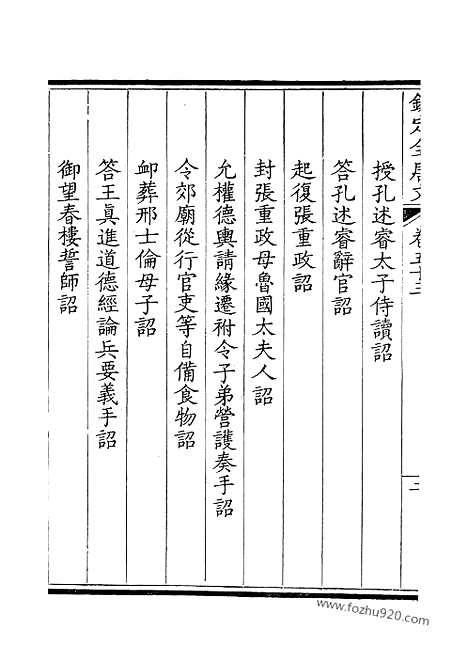 欽定全唐文 卷五十三 二
授孔述睿太子侍讀詔
答孔述睿辭官詔
起復張重政詔
封張重政母魯國太夫人詔
允權德輿請緣遷祔令子弟營護奏手詔
令郊廟從行官吏等自備食物詔
卹葬邢士倫母子詔
答王真進道德經論兵要義手詔
御望春樓誓師詔
www.fozhu920.com